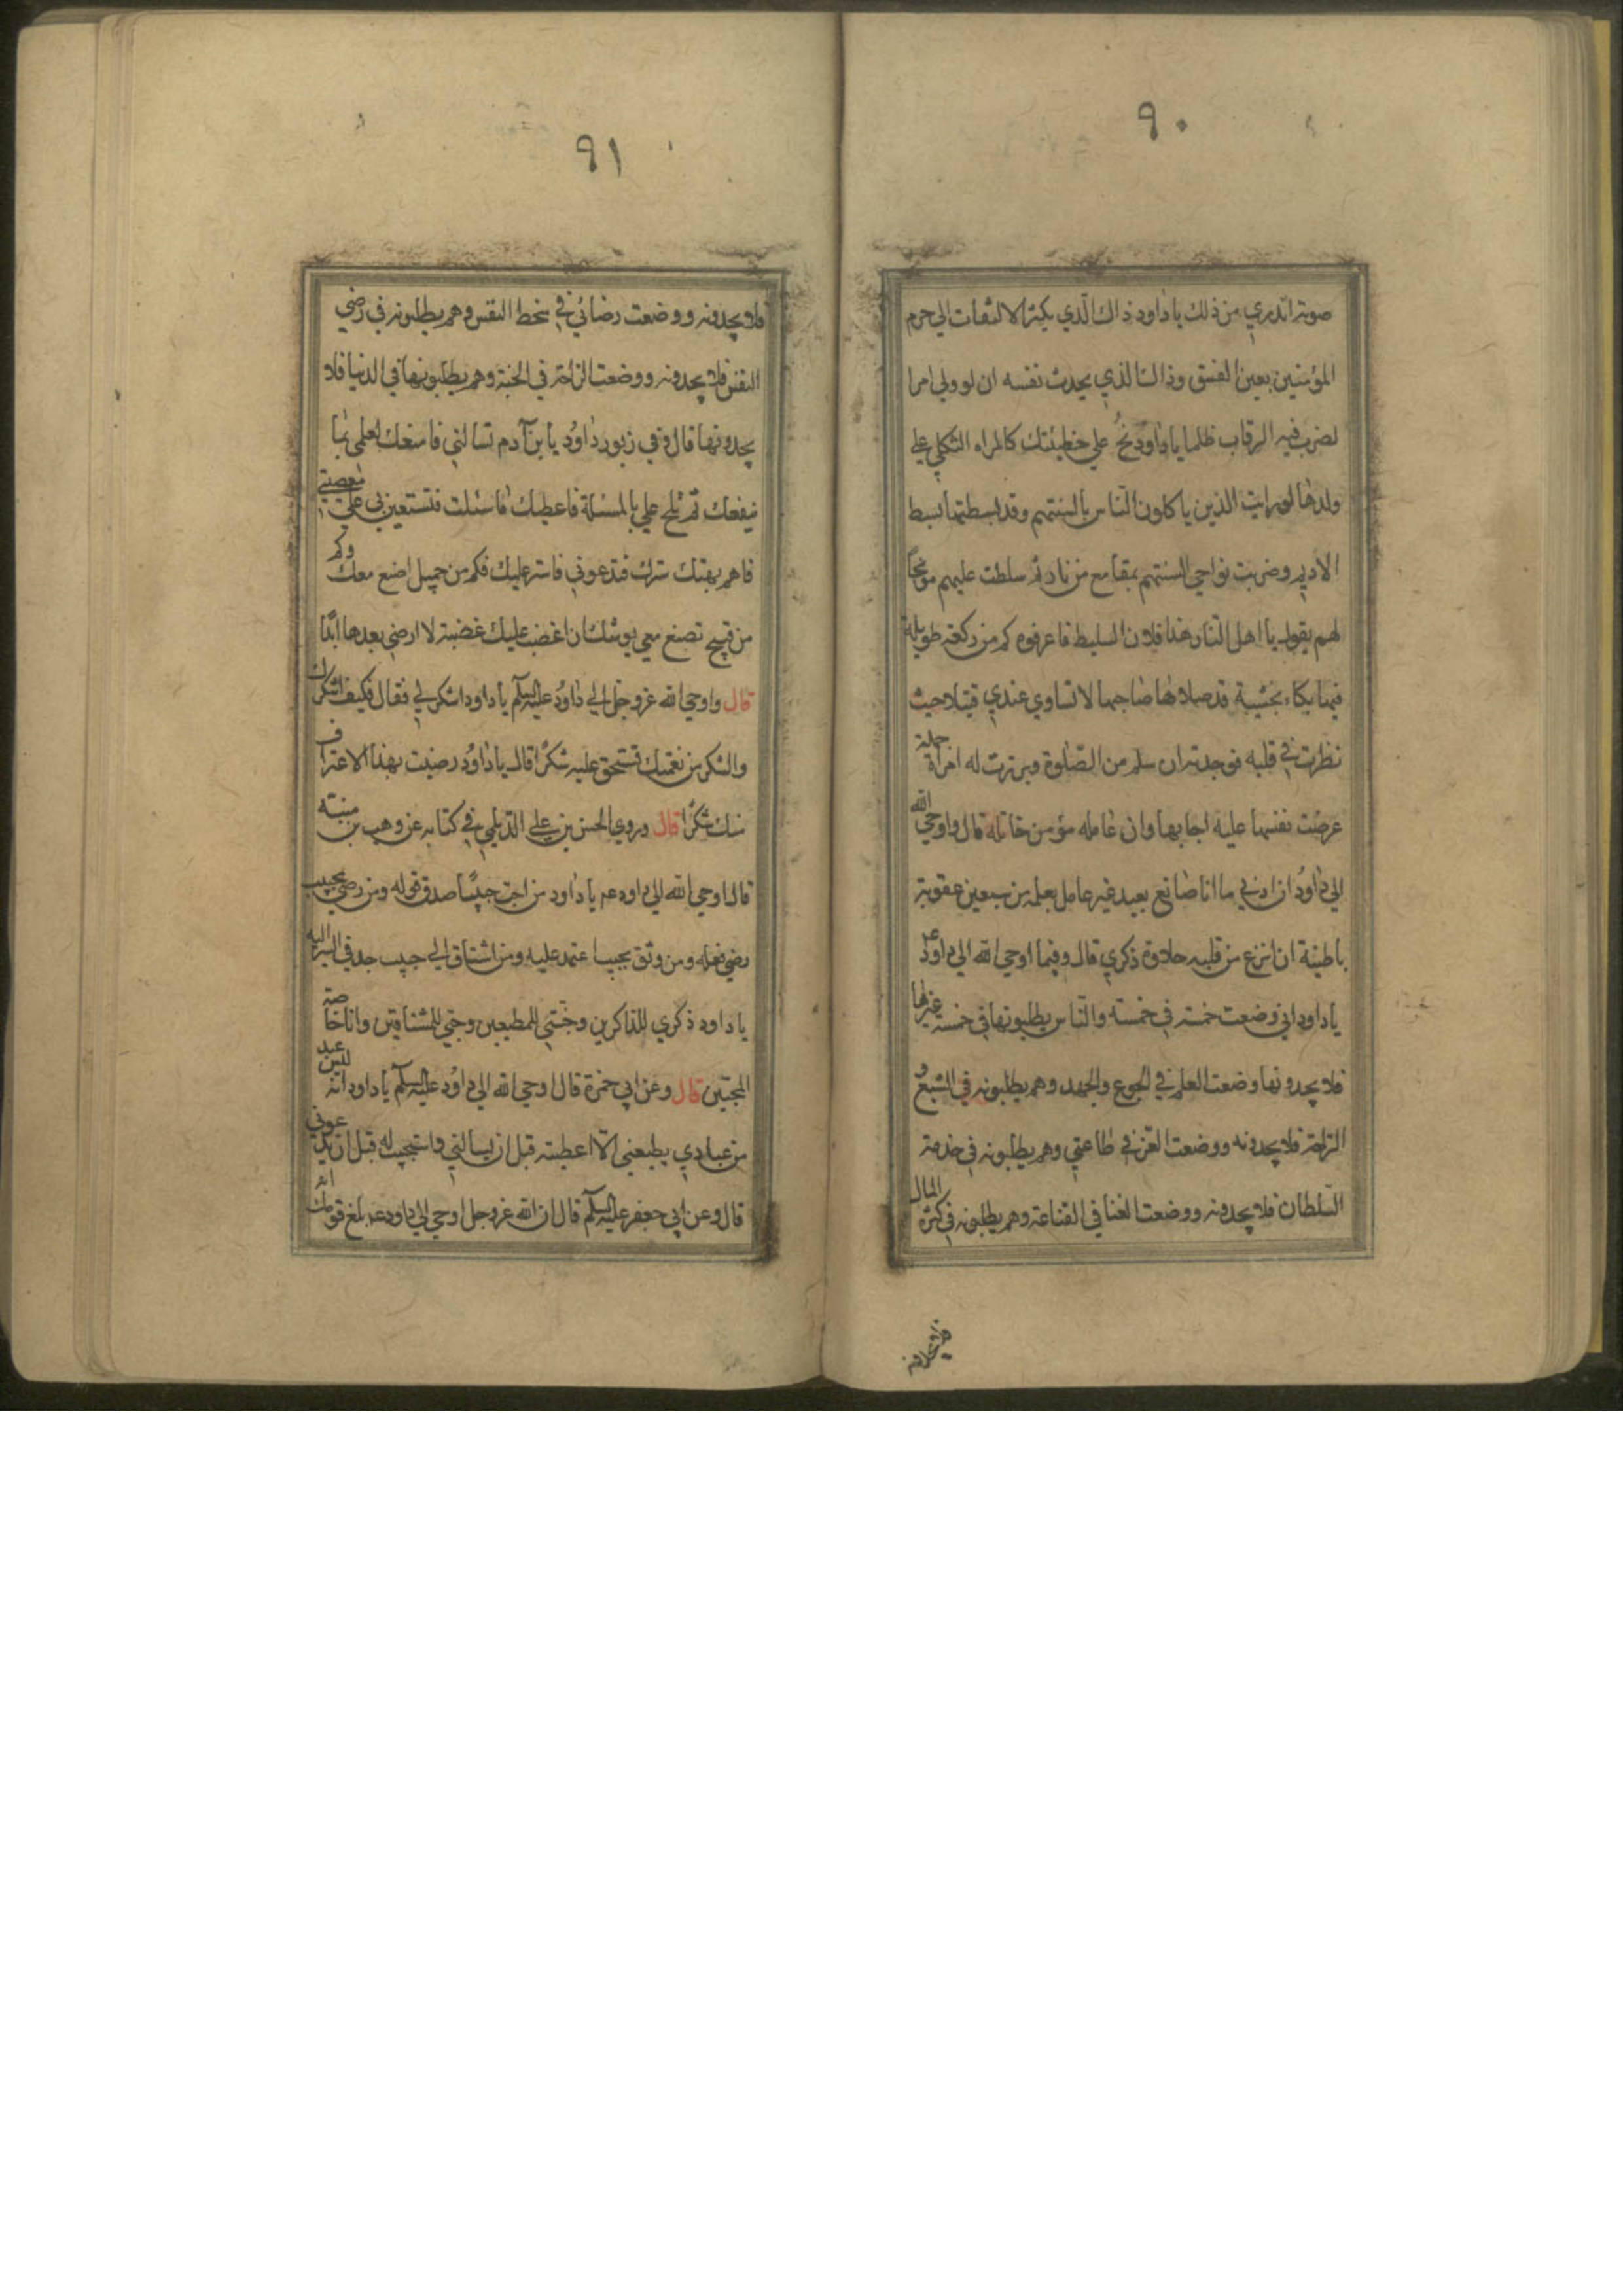 ٩٠
صوته اتدري من ذلك يا داود ذاك الذي يكثر الالتفات الي حرم
المؤمنين بعين الفسق وذاك الذي يحدث نفسه ان لو ولي امرا
لضرب فيه الرقاب ظلما يا داود نح علي خطيئتك كالمراه الثكلي علي
ولدها لو رايت الذين ياكلون الناس بالسنتهم وقد بسطتها بسط
الاديم وضربت نواحي السنتهم بمقامع من نار ثم سلطت عليهم موبخا
لهم يقول يا اهل النار هذا فلان السليط فاعرفوه كم من ركعة طويلة
فيها بكاء بخشية قد صلاها صاحبها لا تساوي عندي فتيلا حيث
نظرت في قلبه فوجدته ان سلم من الصلوة وبرزت له امراة جميلة
عرضت نفسها عليه اجابها وان عامله مؤمن خانه قال واوحي الله
الي داود ان ادني ما انا صانع بعبد غير عامل بعلمه من سبعين عقوبة
باطنية ان انزع من قلبه حلاوة ذكري قال وفيما اوحي الله الي داود ع
يا داود اني وضعت خمسة في خمسة والناس يطلبونها في خمسة غيرها
فلا يجدونها وضعت العلم في الجوع والجهد وهم يطلبونه في الشبع و
الراحة فلا يجدونه ووضعت العز في طاعتي وهم يطلبونه في خدمة
السلطان فلا يجدونه ووضعت الغنا في القناعة وهم يطلبونه في كثرة المال
فلا يجدونه
٩١
فلا يجدونه ووضعت رضائي في سخط النفس وهم يطلبونه في رضي
النفس فلا يجدونه ووضعت الراحة في الجنة وهم يطلبونها في الدنيا فلا
يجدونها قال وفي زبور داود يا بن آدم تسالني فامنعك لعلمي بما
ينفعك ثم تلح علي بالمسئلة فاعطيك ما سئلت فتستعين بي علي معصيتي
فاهم بهتك سترك فتدعوني فاستر عليك فكم من جميل اصنع معك وكم
من قبيح تصنع معي يوشك ان اغضب عليك غضبة لا ارضي بعدها ابدا
قال واوحي الله عز وجل الي داود عليه السلم يا داود اشكر لي فقال فكيف اشكرك
والشكر من نعمتك تستحق عليه شكرا قال يا داود رضيت بهذا الاعتراف
منك شكرا قال وروي الحسن بن علي الديلمي في كتابه عن وهب بن منبته
قال اوحي الله الي داود ع يا داود من احب حبيبا صدق قوله ومن رضي بحبيب
رضي فعله ومن وثق بحبيب اعتمد عليه ومن اشتاق الي حبيب جد في السير اليه
يا داود ذكري للذاكرين وجنتي للمطيعين وحبي للمشتاقين وانا خاصة
للمحبين قال وعن ابي حمزة قال اوحي الله الي داود عليه السلم يا داود انه ليس عبد
من عبادي يطيعني الا اعطيته قبل ان يسالني واستجيب له قبل ان يدعوني
قال وعن ابي جعفر عليه السلم قال ان الله عز وجل اوحي الي داود ع بلغ قومك انه